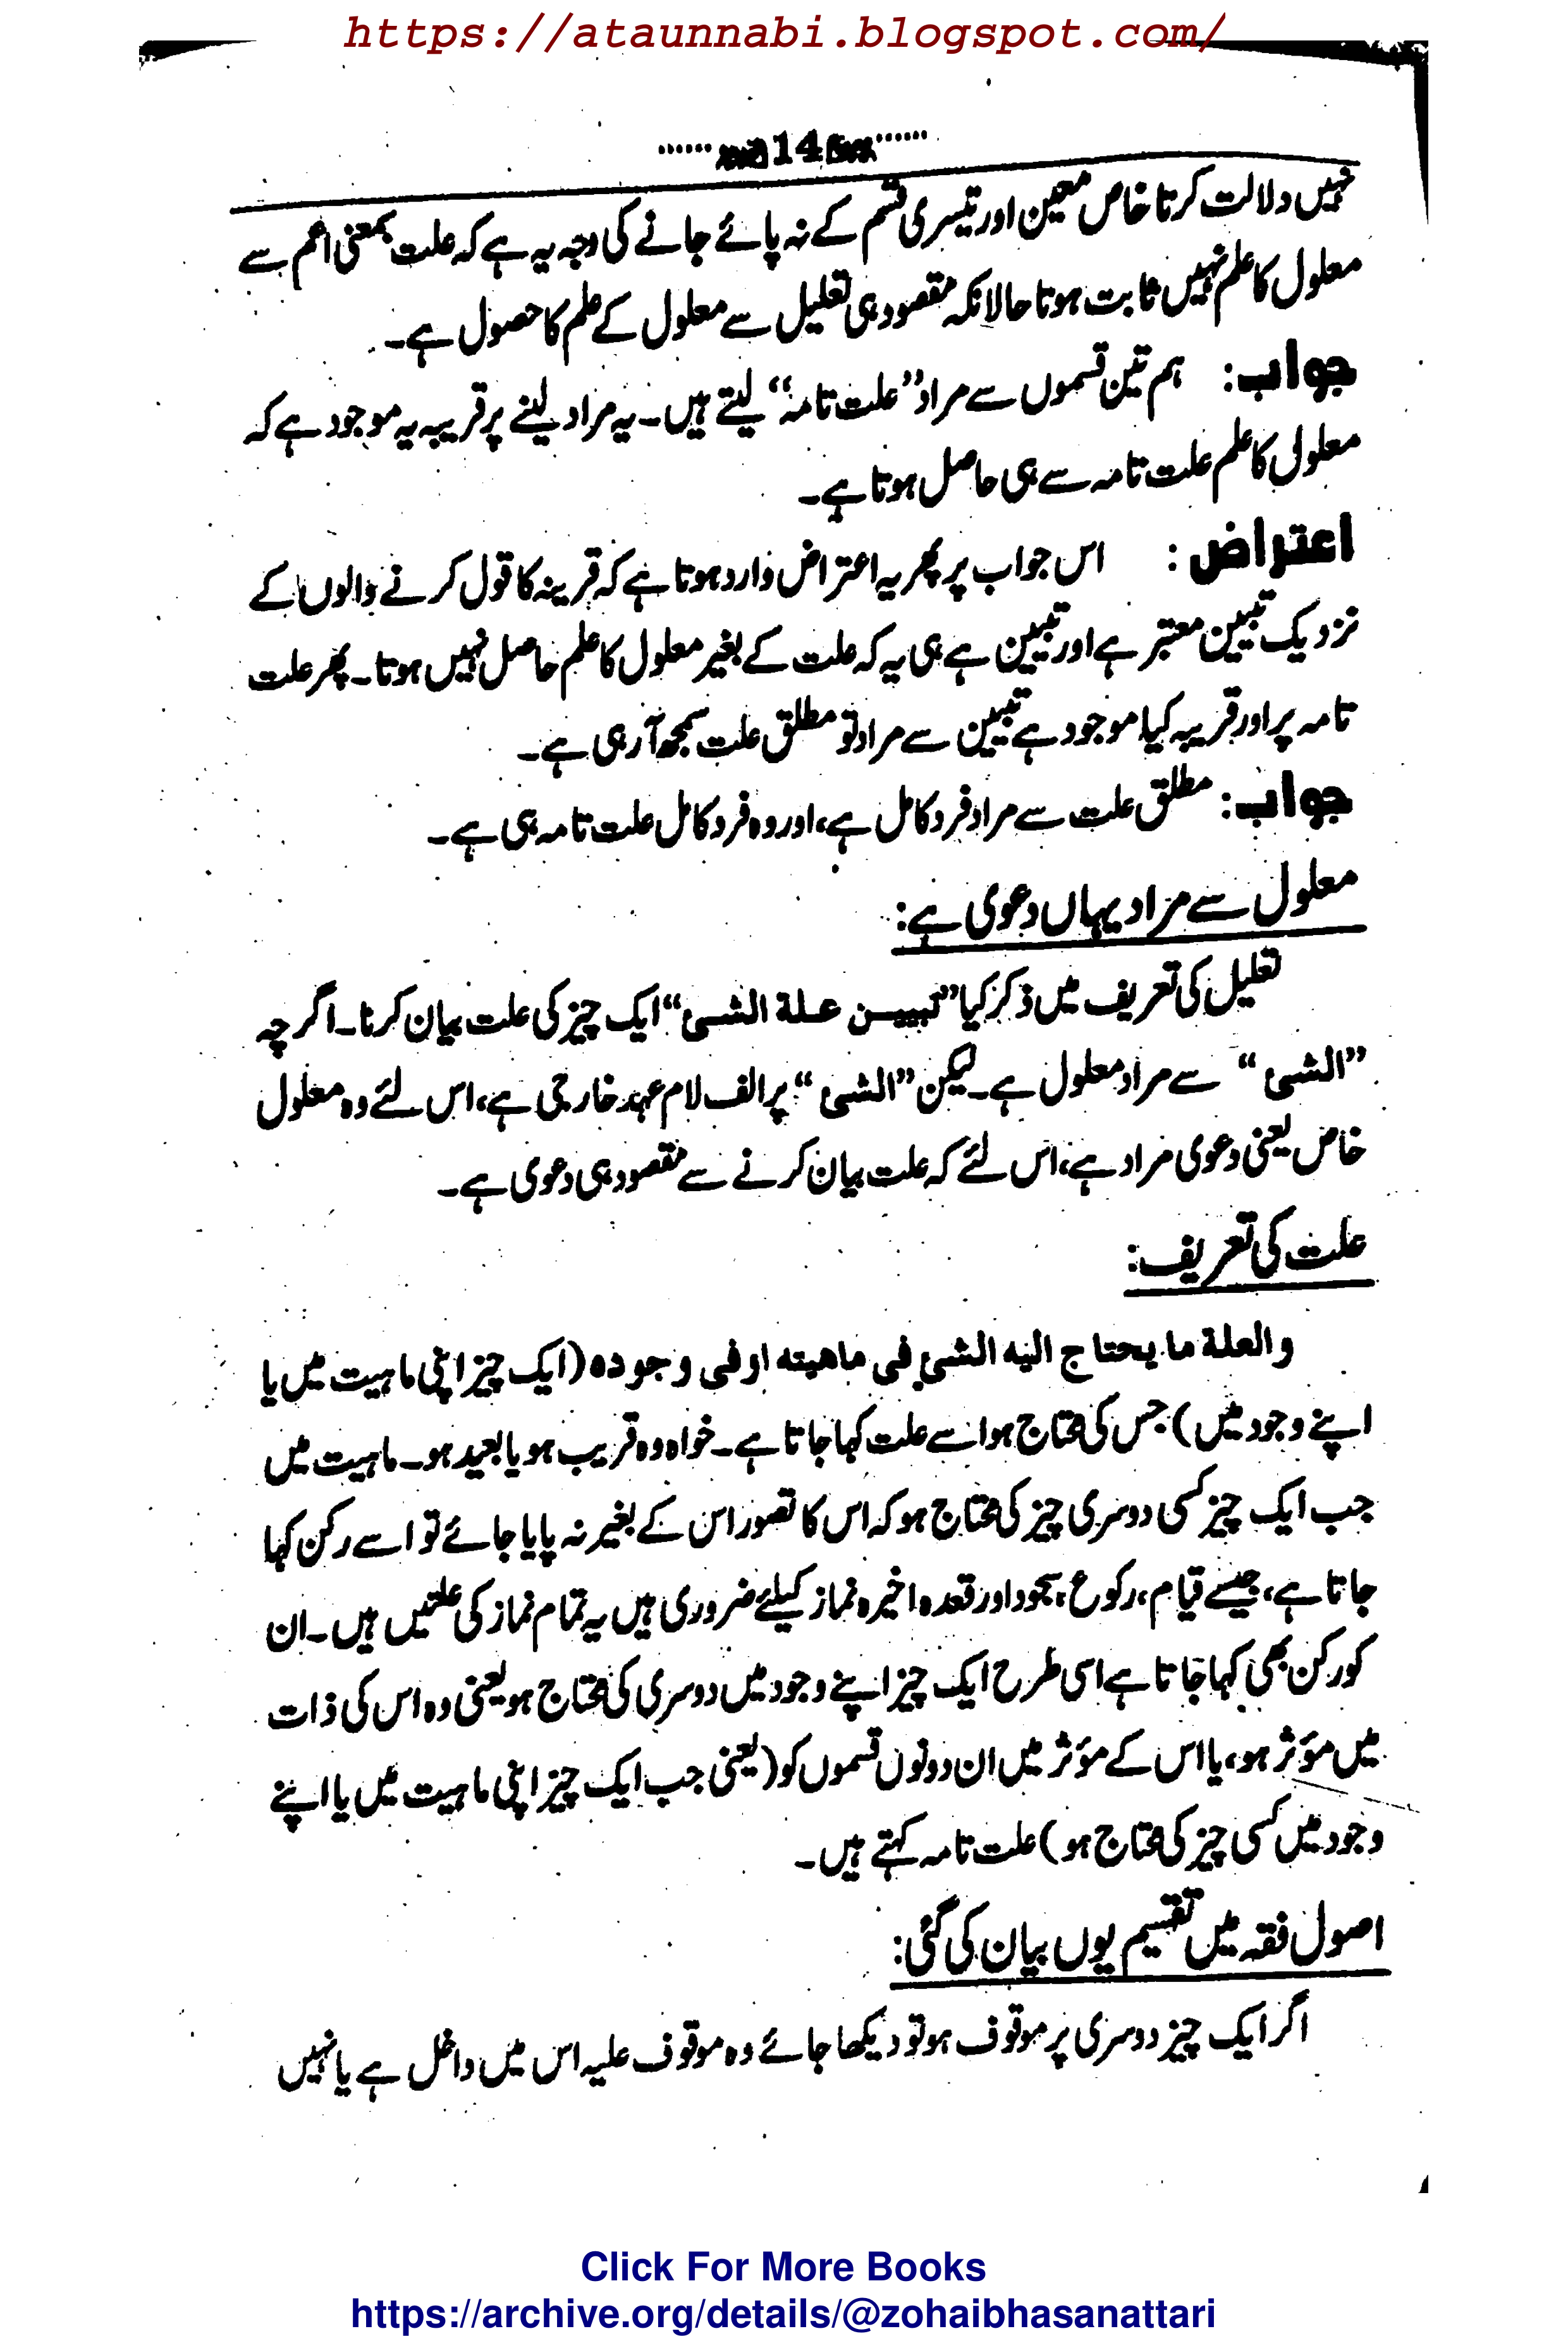 https://ataunnabi.blogspot.com/
......14......
نہیں دلالت کرتا خاص معین اور تیسری قسم کے نہ پائے جانے کی وجہ یہ ہے کہ علت بمعنی اعم سے
معلول کا علم نہیں ثابت ہوتا حالانکہ مقصود ہی تعلیل سے معلول کے علم کا حصول ہے۔
جواب: ہم تین قسموں سے مراد ”علت تامہ“ لیتے ہیں۔ یہ مراد لینے پر قرینہ یہ موجود ہے کہ
معلول کا علم علت تامہ سے ہی حاصل ہوتا ہے۔
اعتراض: اس جواب پر پھر یہ اعتراض وارد ہوتا ہے کہ قرینہ کا قول کرنے والوں کے
نزدیک تبیین معتبر ہے اور تبیین ہے ہی یہ کہ علت کے بغیر معلول کا علم حاصل نہیں ہوتا۔ پھر علت
تامہ پر اور قرینہ کیا موجود ہے تبیین سے مراد تو مطلق علت سمجھ آرہی ہے۔
جواب: مطلق علت سے مراد فرد کامل ہے، اور وہ فرد کامل علت تامہ ہی ہے۔
معلول سے مراد یہاں دعوی ہے:
تعلیل کی تعریف میں ذکر کیا ”تبیین علة الشئ“ ایک چیز کی علت بیان کرنا۔ اگرچہ
”الشئ“ سے مراد معلول ہے۔ لیکن ”الشئ“ پر الف لام عہد خارجی ہے، اس لئے وہ معلول
خاص یعنی دعوی مراد ہے، اس لئے کہ علت بیان کرنے سے مقصود ہی دعوی ہے۔
علت کی تعریف:
والعلة ما يحتاج اليه الشئ في ماهيته او في وجوده (ایک چیز اپنی ماہیت میں یا
اپنے وجود میں) جس کی محتاج ہو اسے علت کہا جاتا ہے۔ خواہ وہ قریب ہو یا بعید ہو۔ ماہیت میں
جب ایک چیز کسی دوسری چیز کی محتاج ہو کہ اس کا تصور اس کے بغیر نہ پایا جائے تو اسے رکن کہا
جاتا ہے، جیسے قیام، رکوع، سجود اور قعدہ اخیرہ نماز کیلئے ضروری ہیں یہ تمام نماز کی علتیں ہیں۔ ان
کو رکن بھی کہا جاتا ہے اسی طرح ایک چیز اپنے وجود میں دوسری کی محتاج ہو یعنی وہ اس کی ذات
میں مؤثر ہو، یا اس کے مؤثر میں ان دونوں قسموں کو (یعنی جب ایک چیز اپنی ماہیت میں یا اپنے
وجود میں کسی چیز کی محتاج ہو) علت تامہ کہتے ہیں۔
اصول فقہ میں تقسیم یوں بیان کی گئی:
اگر ایک چیز دوسری پر موقوف ہو تو دیکھا جائے وہ موقوف علیہ اس میں داخل ہے یا نہیں
Click For More Books
https://archive.org/details/@zohaibhasanattari